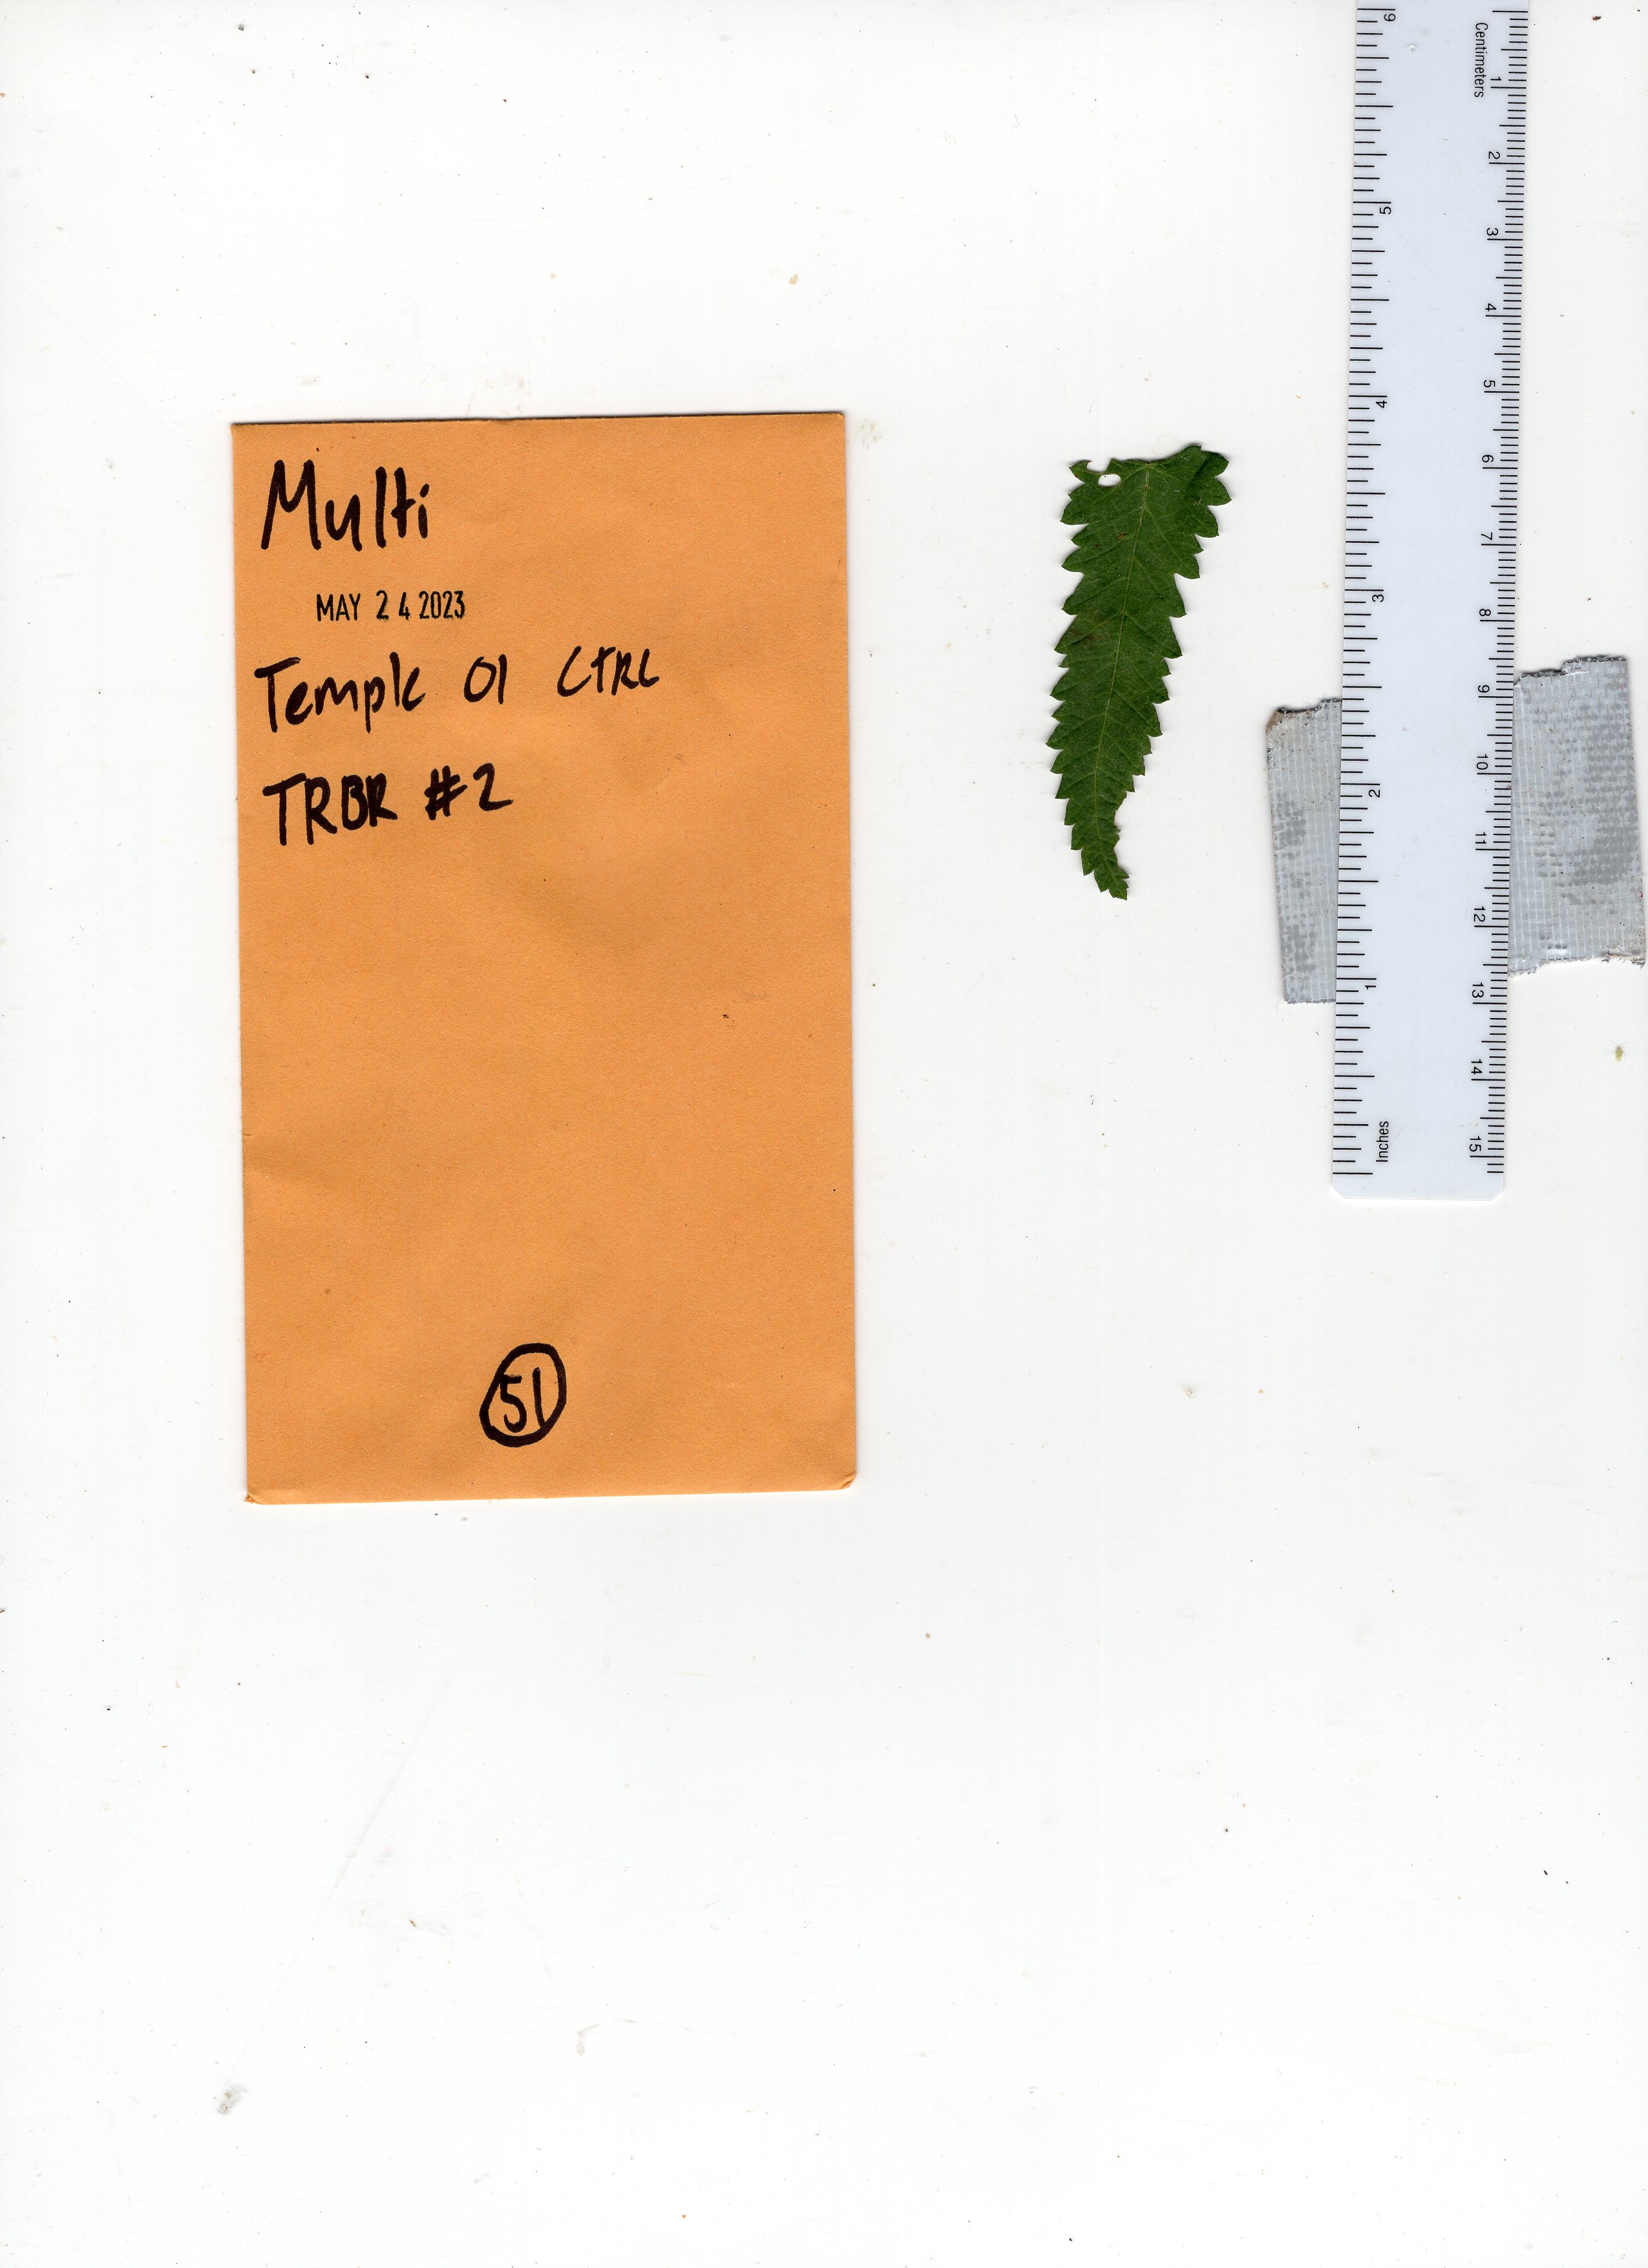 Multi
MAY 24 2023
Temple 01 CTRL
TRBR #2
51
Centimeters
1
2
3
4
5
6
7
8
9
10
11
12
13
14
15
6
5
4
3
2
1
Inches